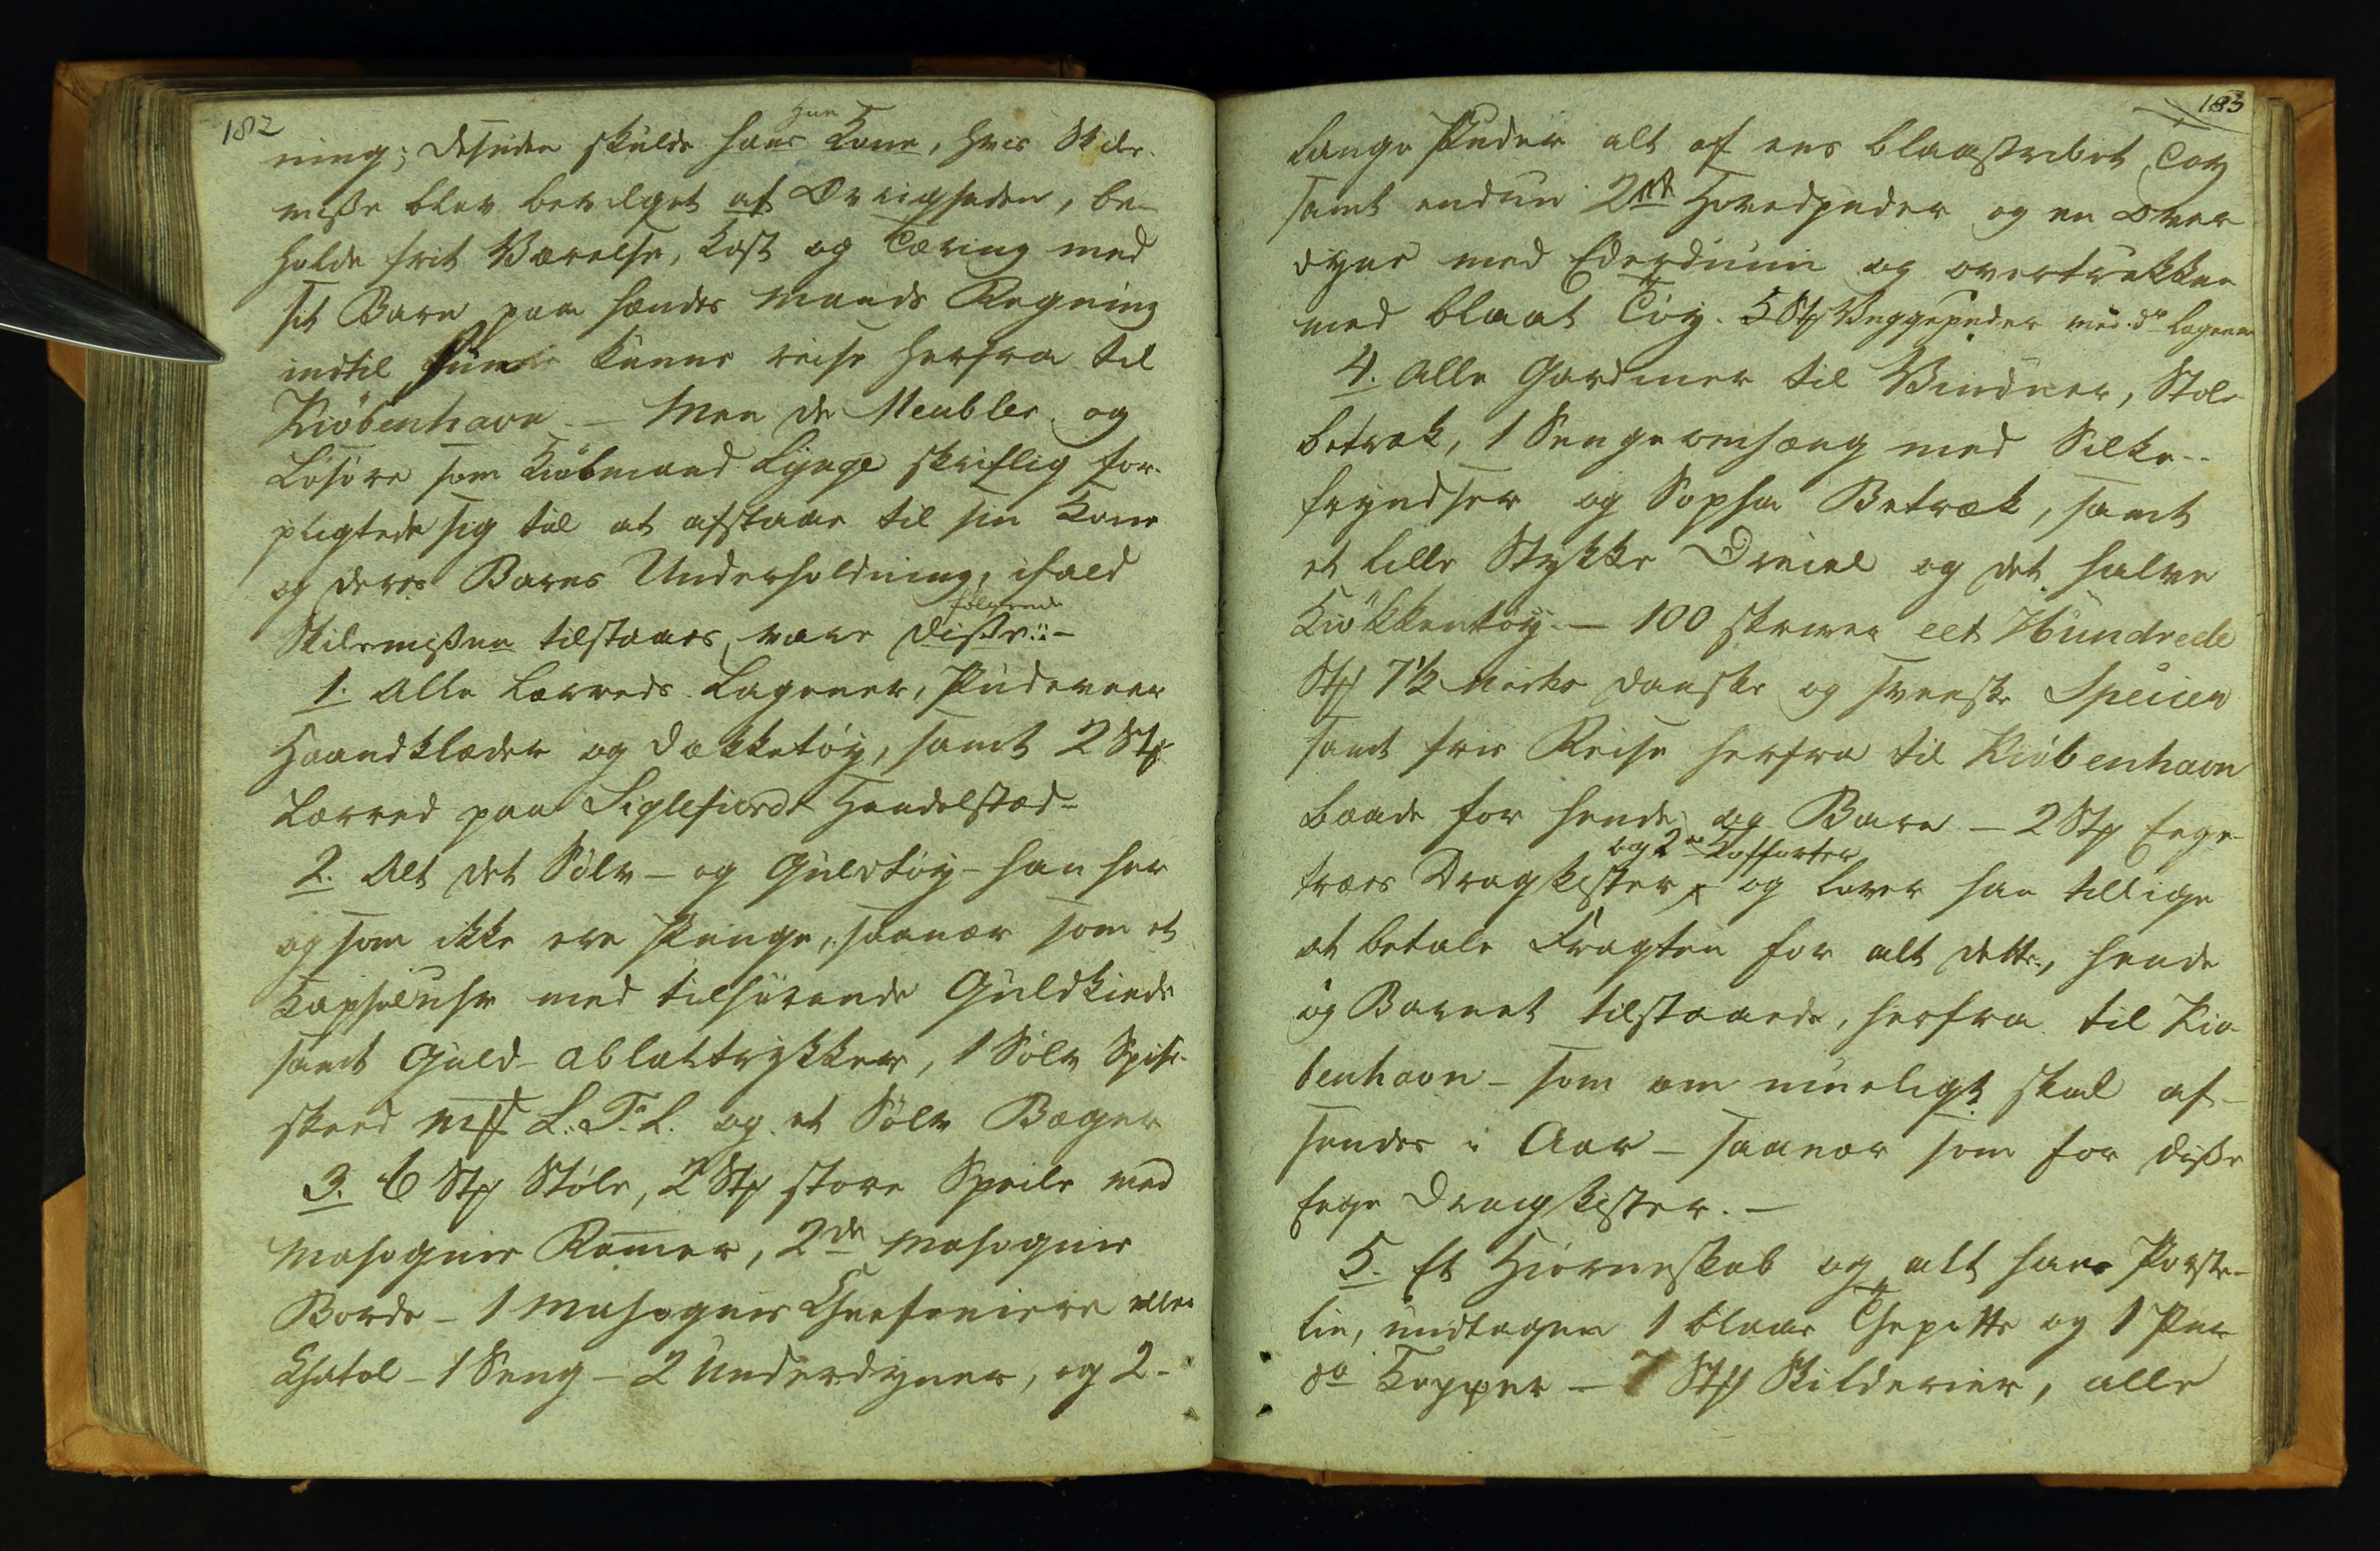 182
ning; desuden skulde hans Kone, hvis Skils-
hun
misse blev bevilget af Øvrigheden, be-
holde frit Værelse, Kost og Tæring med
sit Barn paa hendes Mands Regning
indtil hun kunne reise herfra til
Kiöbenhavn - Men de Meubler og
Løsøre som Kiöbmand Lynge skriftlig for-
pligtede sig til at afstaae til sin Kone
og deres Barns Underholdning, ifald
følgende
Skilsmissen tilstaaes, vare disse:-
1. Alle Lærreds Lagener, Pudevaar
Haandklæder og Dækketöy, samt 2 Stk
Lærred paa Siglefiords Handelsted-
2. Alt det Sölv - og Guldtöy - han her
og som ikke ere Penge, saavær som et
Kapseluhr med tilhörende Guldkiede
samt Guld - Oblattrykker, 1 Sölv Spise-
skeed L. F. L. og et Sölv Bæger
3. 6 Stk Stöle, 2 Stk store Speile med
Mahognie Ramer, 2de Mahognie
Borde - 1 Mahognie Cheffoniere eller
Chatol - 1 Seng - 2 Underdyner, og 2-
183
lange Puder alt af ens blaastribet Töy
samt endnu 2de Hovedpuder og en Over
dyne med Ederduun og overtrukken
med blaat Töy. 5 Stk Veggepuder med do Lagener
4. Alle Gardiner til Vinduer, Stole
betræk, 1 Sengeomhæng med Silke-
fryndser og Sopha Betræk, samt
et lille Stykke Dreiel og det halve
Kiökkentöy - 100 skriver eet Hundrede
Stk 7 1/2 Marks danske og svenske Specier
samt frie Reise herfra til Kiöbenhavn
baade for hende og Barn - 2 Stk Eege-
og 2de Kofforter
træes Dragkister og lover han tillige
at betale Fragten for alt dette, hende
og Barnet tilstaaede, herfra til Kiö
benhavn - som om mueligt skal af-
sendes i Aar - saavær som for disse
Eege Dragkister. -
5. Et Hiörneskab og alt hans Porste-
lin, undtagen 1 blaae Thepotte og 1 Par
do Kopper - 7 Stk Skilderier, alle